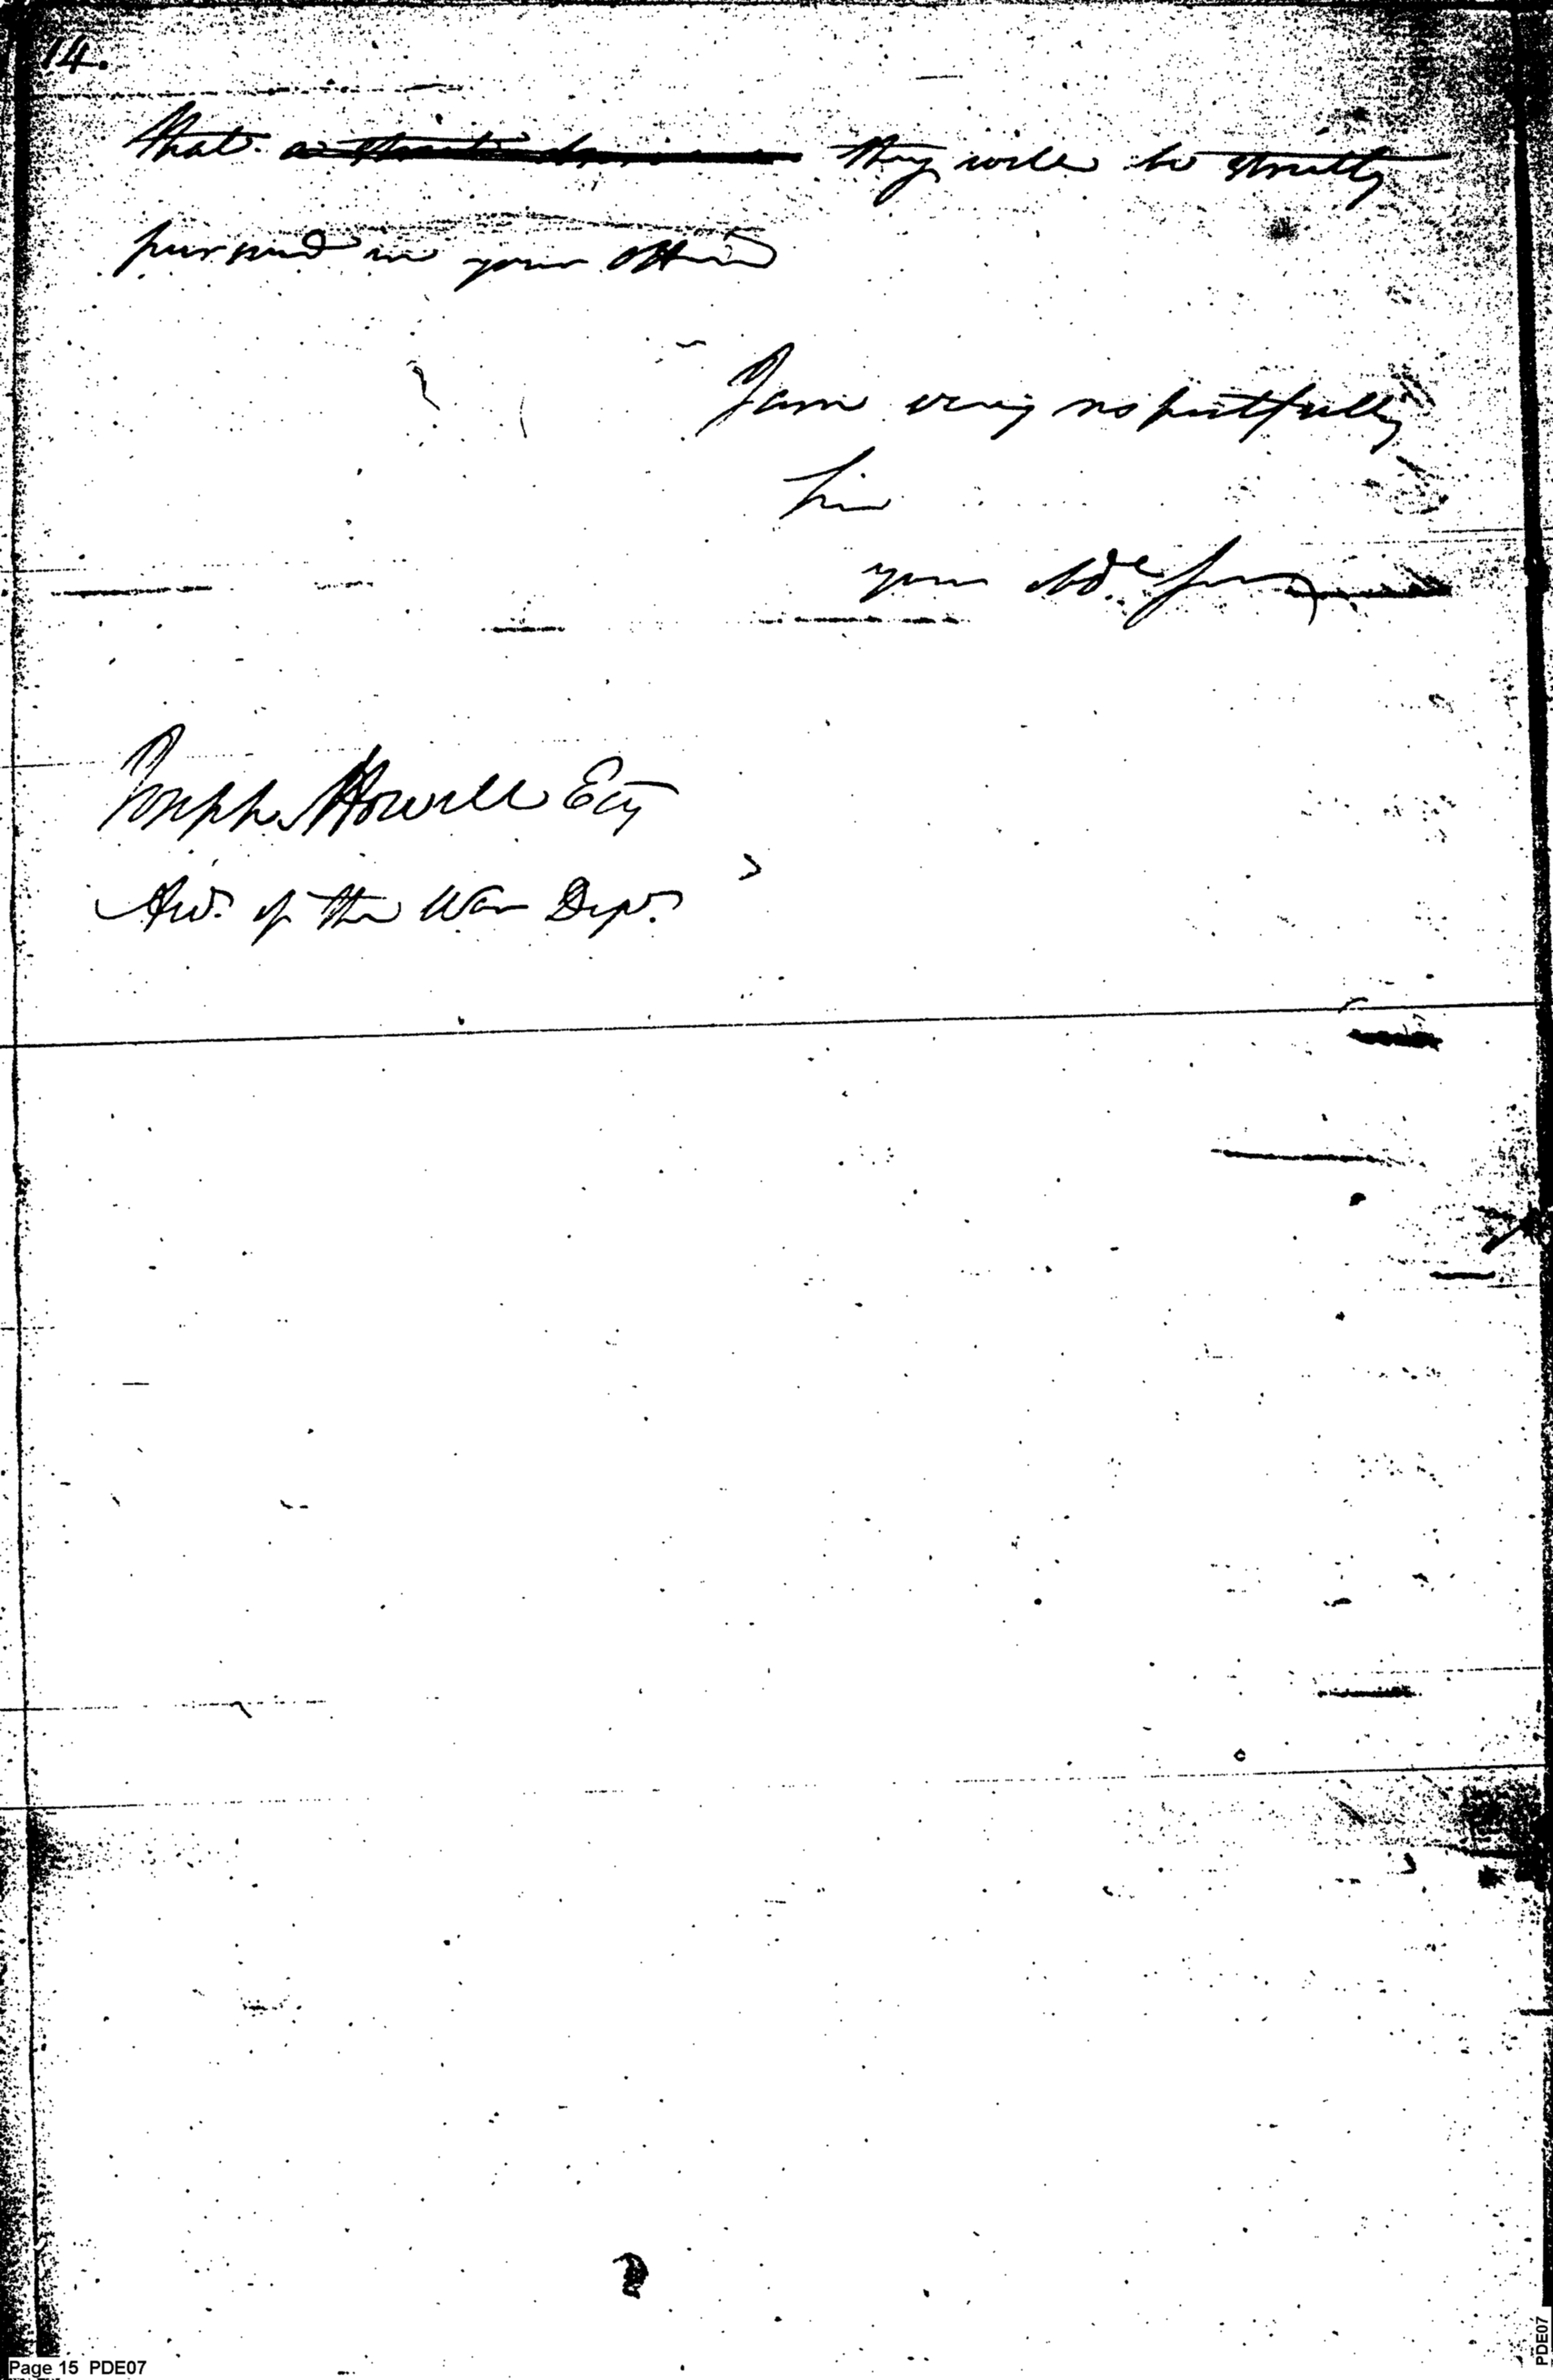 14.
that they will be strictly
pursued in your office
I am very respectfully
Sir
your Obd. Serv
Joseph Howell Esq
of the War Dept.
Page 15 PDE07
PDE07